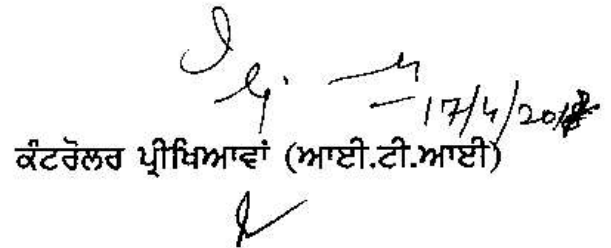 17/4/201
ਕੰਟਰੋਲਰ ਪ੍ਰੀਖਿਆਵਾਂ (ਆਈ.ਟੀ.ਆਈ)